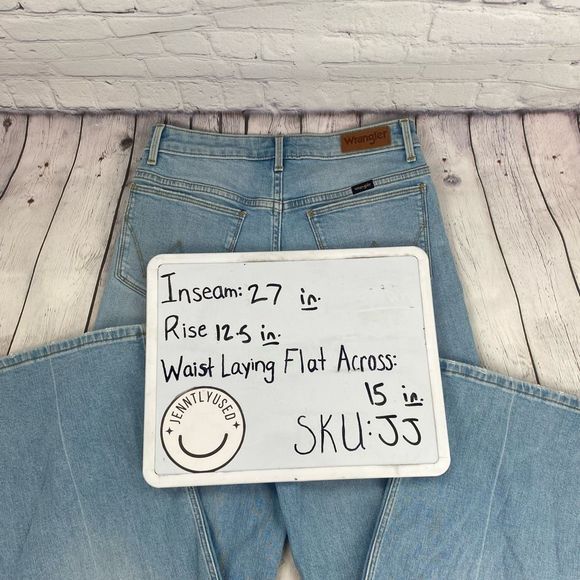 Wrangler
Wrangler
Inseam: 27 in.
Rise 12.5 in.
Waist Laying Flat Across:
15 in.
JENNTLYUSED
SKU: JJ